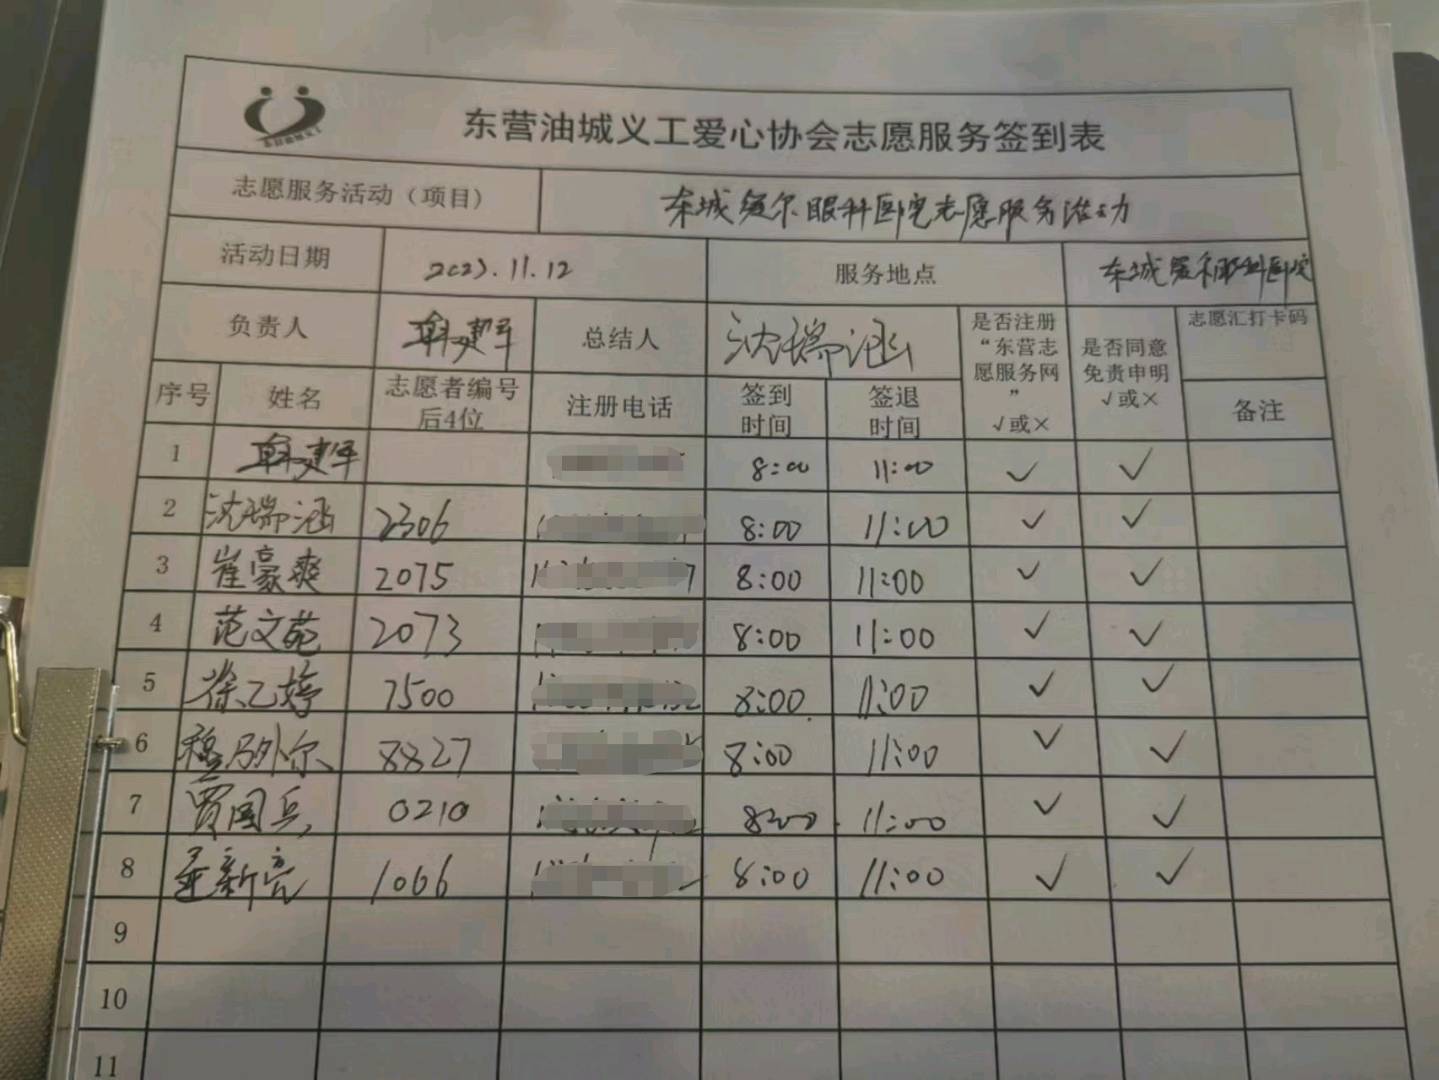 东营油城义工爱心协会志愿服务签到表
志愿服务活动（项目） 东城爱尔眼科医院志愿服务活动
活动日期 2023.11.12 服务地点 东城爱尔眼科医院
负责人 韩建军 总结人 沈瑞涵 是否注册“东营志愿服务网” √或× 是否同意免责申明 √或× 志愿汇打卡码
序号 姓名 志愿者编号后4位 注册电话 签到时间 签退时间 备注
1 韩建军 8:00 11:00 √ √
2 沈瑞涵 2306 8:00 11:00 √ √
3 崔豪爽 2075 8:00 11:00 √ √
4 范文苑 2073 8:00 11:00 √ √
5 徐乙婷 7500 8:00 11:00 √ √
6 穆乃外尔 8827 8:00 11:00 √ √
7 贾国兵 0210 8:00 11:00 √ √
8 新亮 1066 8:00 11:00 √ √
9
10
11